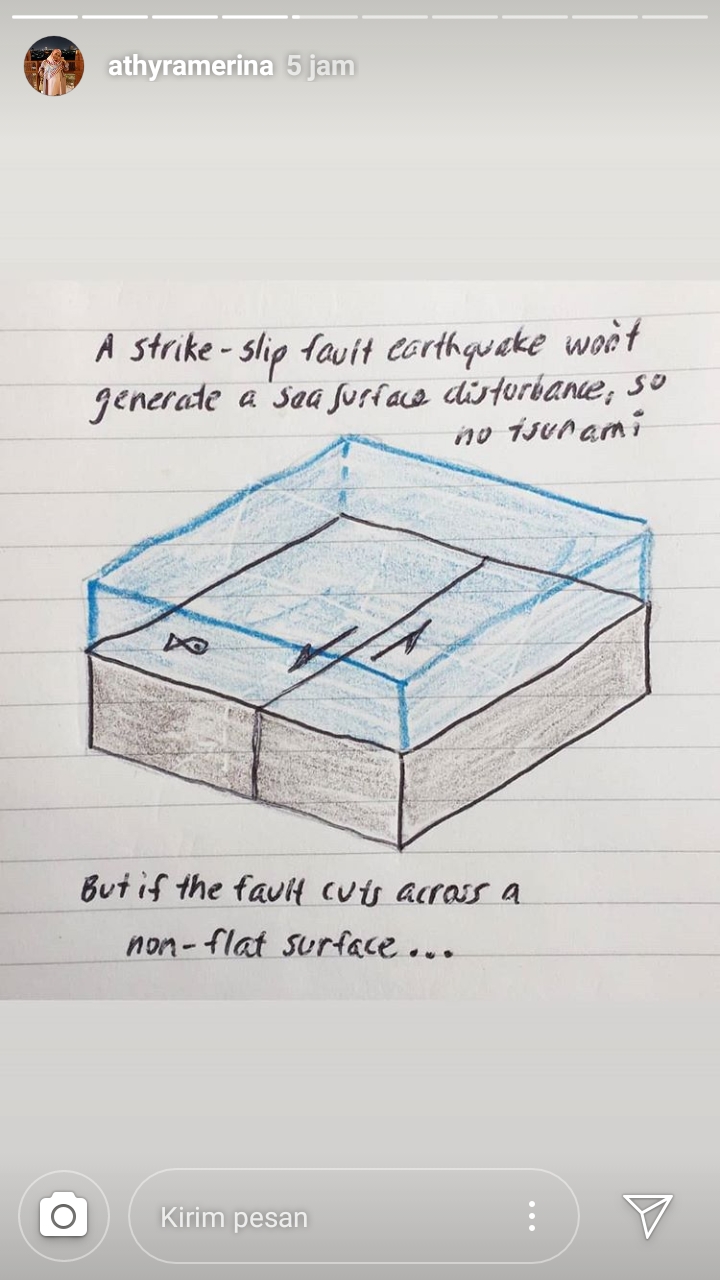 athyramerina 5 jam
A strike-slip fault earthquake won't
generate a sea surface disturbance, so
no tsunami
But if the fault cuts across a
non-flat surface...
Kirim pesan